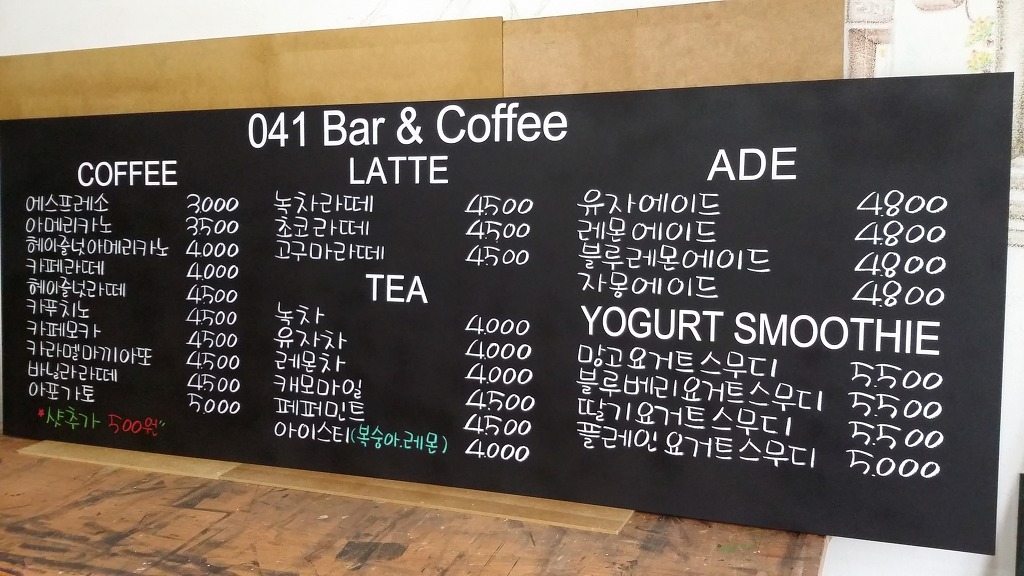 041 Bar & Coffee
COFFEE
에스프레소 3,000
아메리카노 3,500
헤이즐넛아메리카노 4,000
카페라떼 4,000
헤이즐넛라떼 4,500
카푸치노 4,500
카페모카 4,500
카라멜마끼아또 4,500
바닐라라떼 4,500
아포가토 5,000
*샷추가 500원"
LATTE
녹차라떼 4,500
초코라떼 4,500
고구마라떼 4,500
TEA
녹차 4,000
유자차 4,000
레몬차 4,000
캐모마일 4,500
페퍼민트 4,500
아이스티(복숭아.레몬) 4,000
ADE
유자에이드 4,800
레몬에이드 4,800
블루레몬에이드 4,800
자몽에이드 4,800
YOGURT SMOOTHIE
망고요거트스무디 5,500
블루베리요거트스무디 5,500
딸기요거트스무디 5,500
플레인요거트스무디 5,000